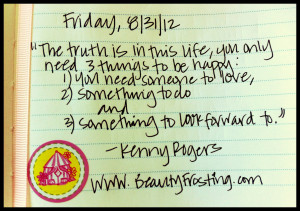 Friday, 8/31/12
"The truth is in this life, you only
need 3 things to be happy:
1) you need someone to love,
2) something to do
and
3) something to look forward to."
- Kenny Rogers
www.BeautyFrosting.com